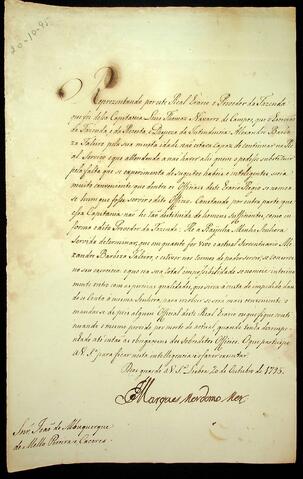 20-10-95
Representando por este Real Erario o Provedor da Fazenda
que foi dessa Capitania Luiz Ramos Navarro de Campos, que o Escrivão
da Fazenda, e da Receita, e Despeza da Intendencia Alexandre Barbo
za Faleiro pela sua muita idade não estava capaz de continuar no Re
al Serviço e que attendendo a não haver ahi quem o podesse substituir
pela falta que se experimenta de sugeitos habeis e inteligentes, seria
muito conveniente que dentre os Officiaes deste Erario Regio se nomeas
se hum que fosse servir o dito Officio. Constando por outra parte que
essa Capitania não he tão destituida de homens sufficientes, como in
forma o dito Provedor da Fazenda: He a Rainha Minha Senhora
Servida determinar, que em quanto for vivo o actual Serventuario Ale
xandre Barboza Faleiro, e estiver nos termos de poder servir, se conserve
no seu exercicio: e que na sua total impossibilidade se nomeie interina
mente outro com as precisas qualidades, que sirva a custa do impedido dan
do se Conta á mesma Senhora, para resolver se será mais conveniente o
mandar-se para ahi algum Official deste Real Erario ou que fique conti
nuando o mesmo provido por morte do actual quando tenha desempe
nhado até então as obrigaçoens dos sobreditos Officios. O que participo
a V. S.ª para ficar nesta intelligencia e o fazer executar.
Deos guarde a V. S.ª Lisboa 20 de Outubro de 1795.
Marquez Mordomo Mor.
Snr. João de Albuquerque
de Mello Pereira e Caceres